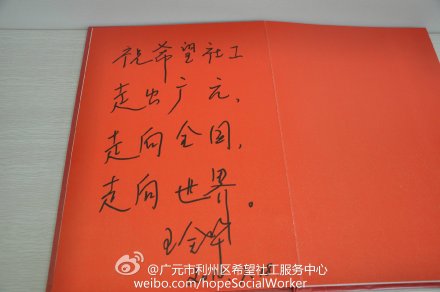 祝希望社工
走出广元、
走向全国，
走向世界。
@广元市利州区希望社工服务中心
weibo.com/hopeSocialWorker